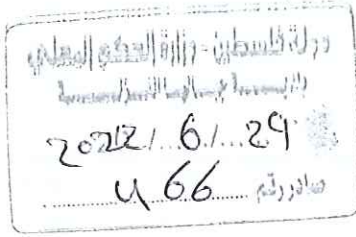 دولة فلسطين - وزارة الحكم المحلي
2022/6/29
صادر رقم 466